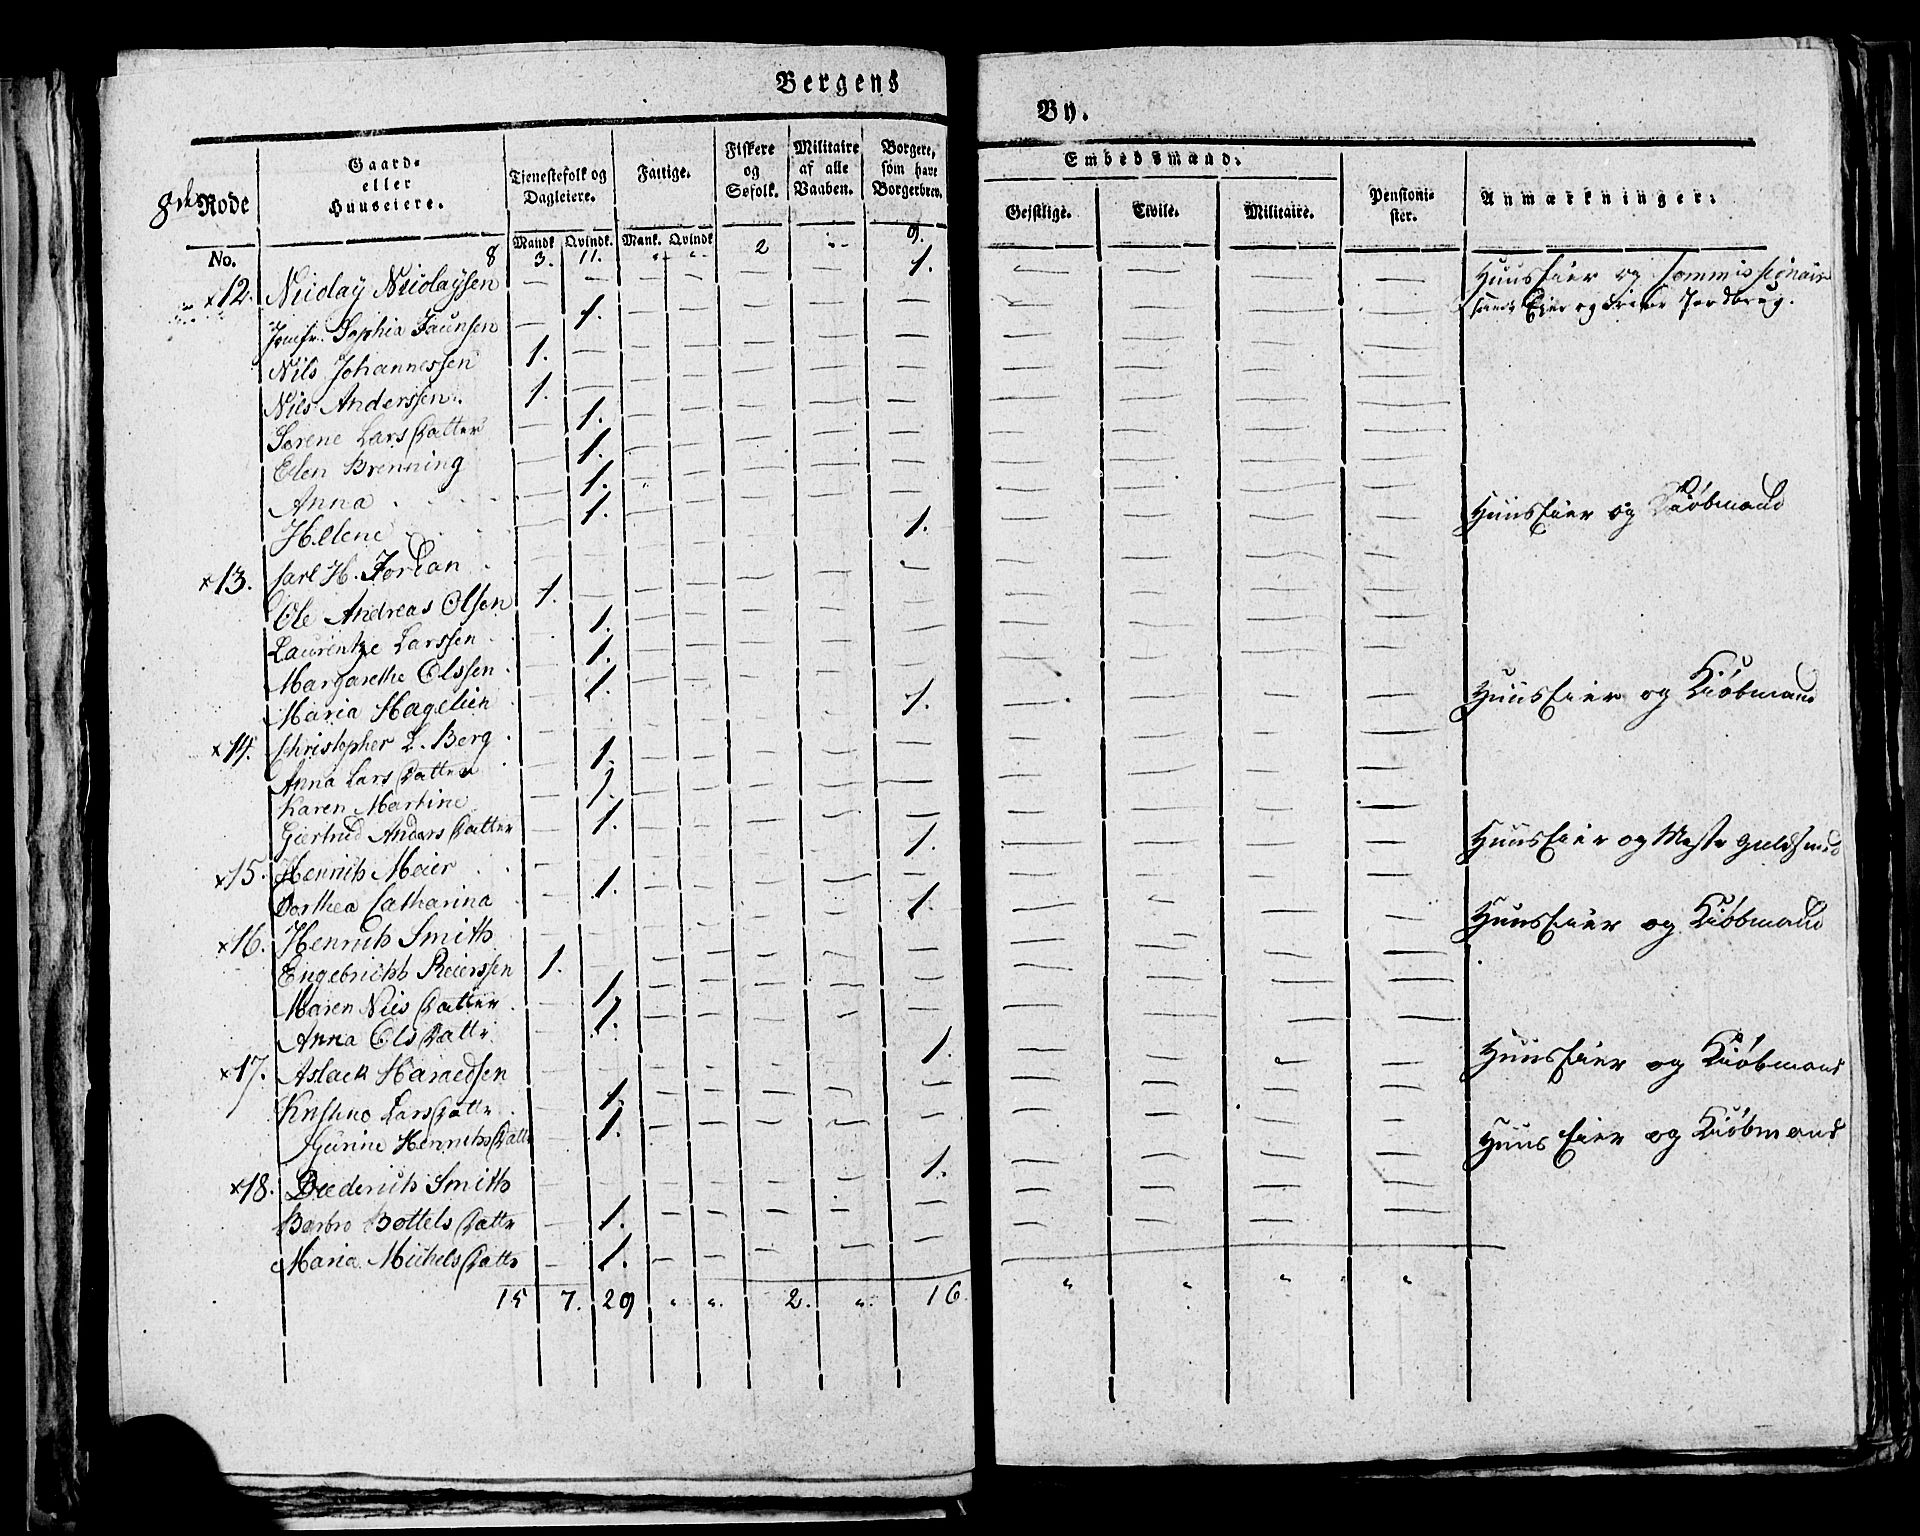 Bergens
By.
8de Rode
Gaard-
eller
Huuseiere.
Tjenestefolk og
Dagleiere.
Fattige.
Fiskere
og
Søfolk.
Militaire
af alle
Vaaben.
Borgere,
som have
Borgerbrev.
Embedsmænd.
Geistlige.
Civile.
Militaire.
Pensioni-
ster.
Anmærkninger.
No.
Mandk. Qvindk. Mank. Qvindk.
8 3. 11. " " 2 " 9.
x12. Nicolay Nicolaysen — — — — — — 1. — — — — Huus Eier og Commissionair
Jomfr. Sophia Jaunsen — 1. — — — — — — — — — Eier og Jordbrug.
Nils Johannessen 1. — — — — — — — — — —
Nils Anderssen 1. — — — — — — — — — —
Sørene Lars Datter — 1. — — — — — — — — —
Elen Brenning — 1. — — — — — — — — —
Anna — 1. — — — — — — — — —
Helene — 1. — — — — — — — — —
x13. Carl H. Jordan — — — — — — 1. — — — — Huus Eier og Kiøbmand
Ole Andreas Olsen 1. — — — — — — — — — —
Laurentze Larssen — 1. — — — — — — — — —
Margarethe Olssen — 1. — — — — — — — — —
Maria Hagelien — 1. — — — — — — — — —
x14. Christopher L. Berg — — — — — — 1. — — — — Huus Eier og Kiøbmand
Anna Lars Datter — 1. — — — — — — — — —
Karen Martine — 1. — — — — — — — — —
Giertrud Anders Datter — 1. — — — — — — — — —
x15. Henrich Meier — — — — — — 1. — — — — Huus Eier og Mestr Guldsmed
Dorthea Catharina — 1. — — — — — — — — —
x16. Henrich Smith — — — — — — 1. — — — — Huus Eier og Kiøbmand
Engebricht Reierssen 1. — — — — — — — — — —
Maren Nils Datter — 1. — — — — — — — — —
Anna Ols Datter — 1. — — — — — — — — —
x17. Aslack Haraldsen — — — — — — 1. — — — — Huus Eier og Kiøbmand
Lars Dattr — 1. — — — — — — — — —
Gurine Henrichs Dattr — 1. — — — — — — — — —
x18. Diederich Smith — — — — — — 1. — — — — Huus Eier og Kiøbmand
Barbro Bottels Dattr — 1. — — — — — — — — —
Maria Michels Dattr — 1. — — — — — — — — —
15 7. 29 " " 2. " 16 " " " "